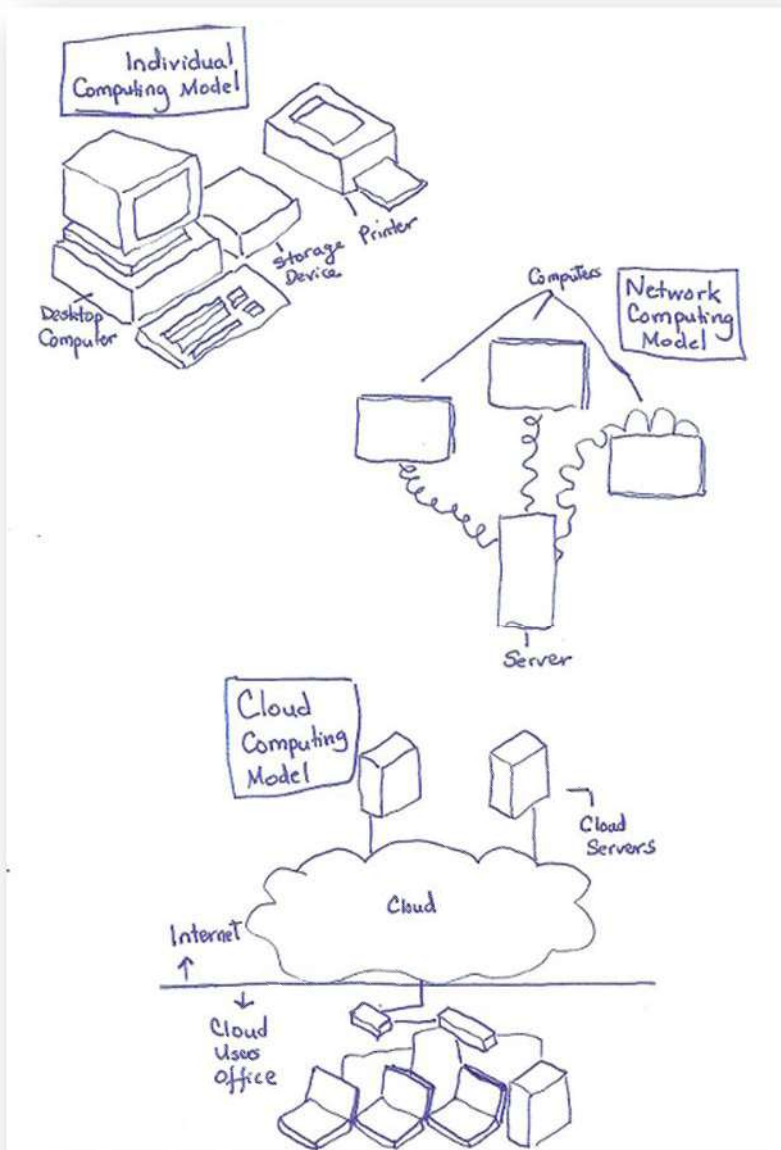 Individual
Computing Model
Printer
Storage
Device
Desktop
Computer
Computers
Network
Computing
Model
Server
Cloud
Computing
Model
Cload
Servers
Cloud
Internet
Cloud
Users
Office